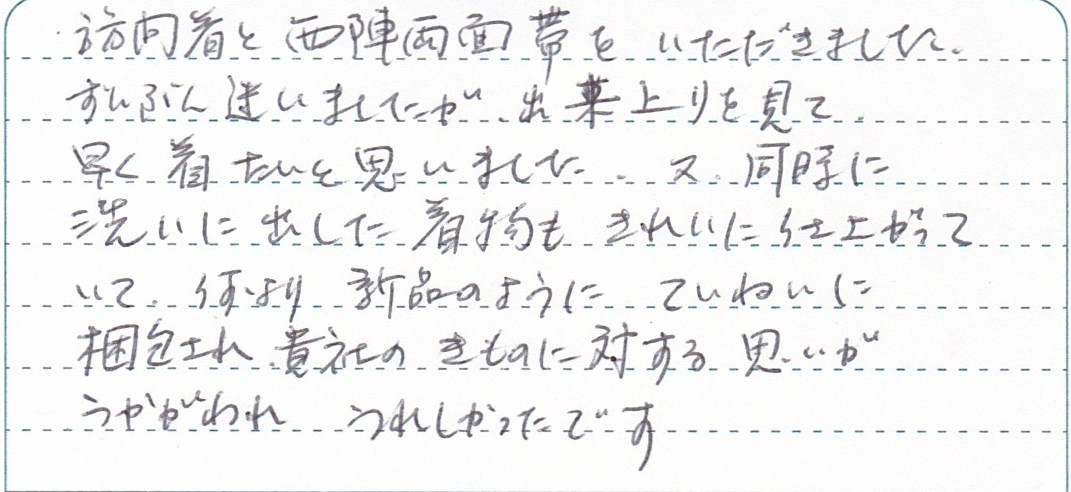 訪問着と西陣両面帯をいただきました。
ずいぶん迷いましたが、出来上りを見て、
早く着たいと思いました。又、同時に
洗いに出した着物もきれいに仕上がって
いて、何より新品のようにていねいに
梱包され、貴社のきものに対する思いが
うかがわれ うれしかったです